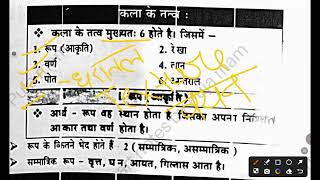 कला के तत्व :
कला के तत्व मुख्यतः 6 होते है। जिसमें –
1. रूप (आकृति) 2. रेखा
3. वर्ण 4. तान
5. पोत 6. अन्तराल
धरातल
अर्थ - रूप वह स्थान होता है जिसका अपना निश्चित
आकार तथा वर्ण होता है।
रूप के कितने भेद होते हैं - 2 (सम्मात्रिक, असम्मात्रिक)
सम्मात्रिक रूप - वृत्त, घन, आयत, गिलास आता है।